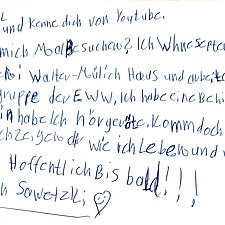 und kenne dich von Youtube.
mich Mal Besuchen? Ich Whne
bei Walter-Mülich Haus und arbeite
gruppe der EWW, ich habe eine Behi
in habe Ich hörgeräte. Komm doch
ch zeige dir wie ich Lebe und
Hoffentlich Bis bald!!!
Sawetzki